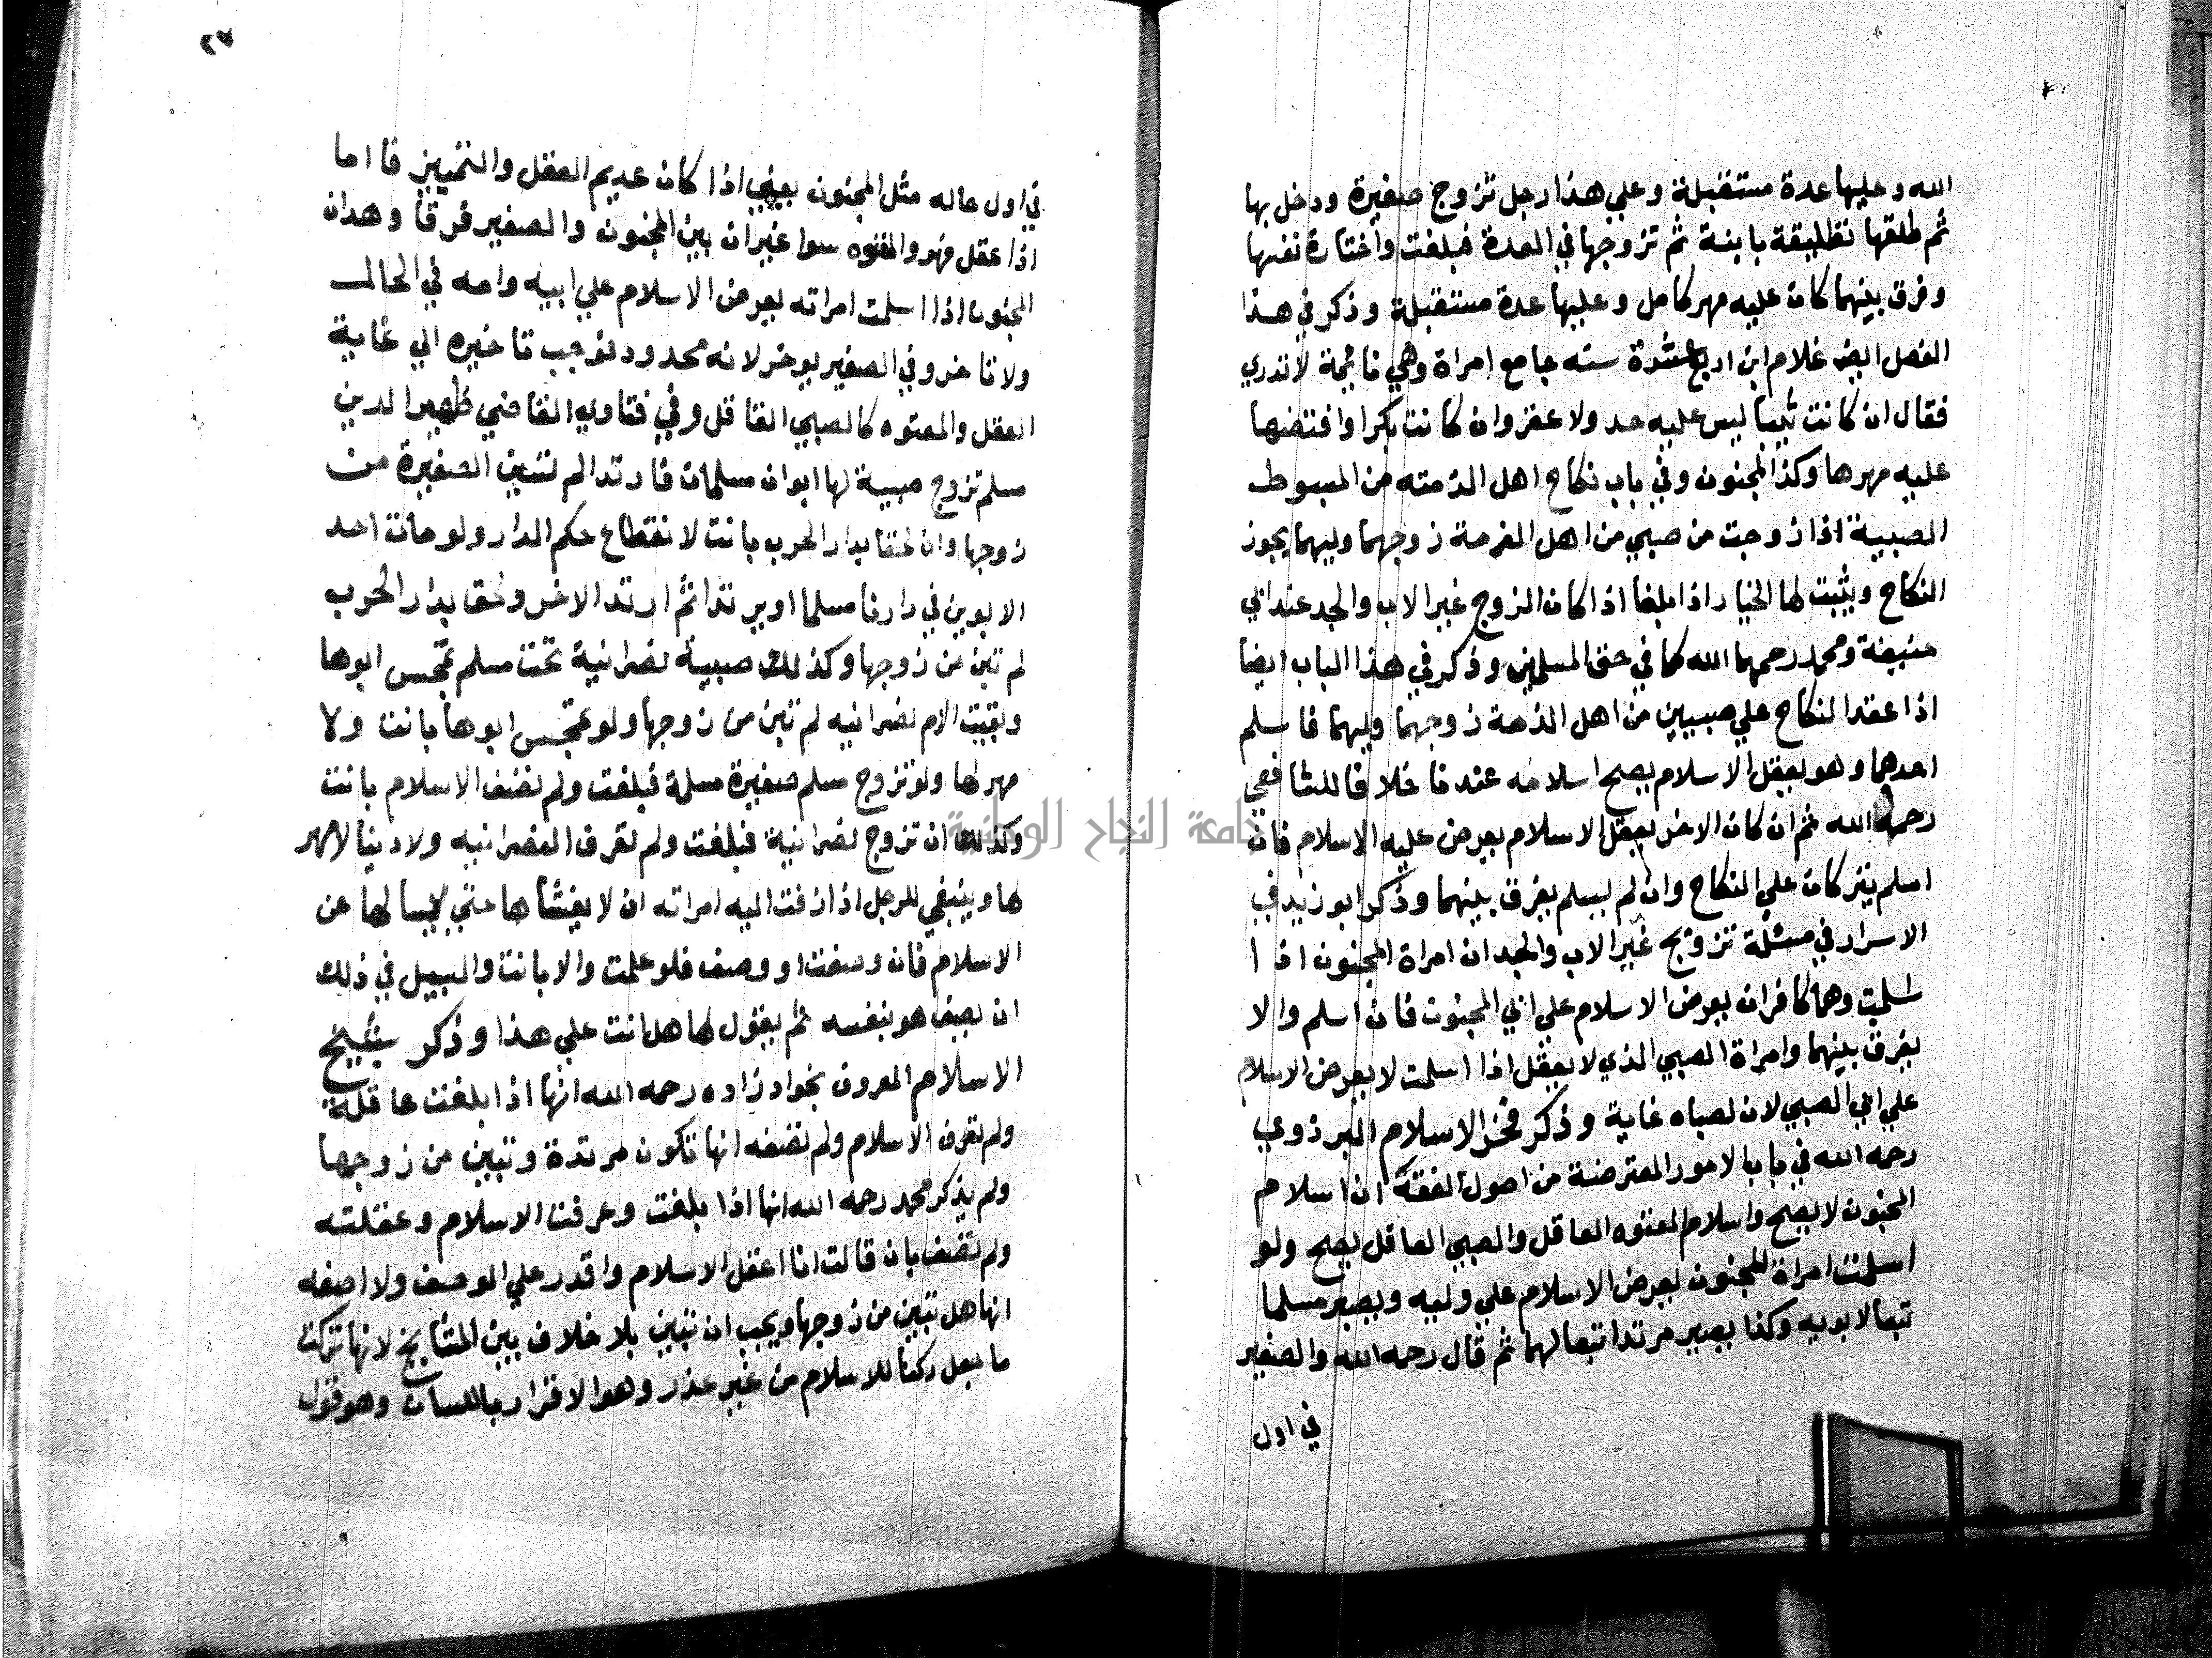 الله وعليها عدة مستقبلة وعلي هذا رجل تزوج صغيرة ودخل بها
ثم طلقها تطليقة باينة ثم تزوجها في العدة فبلغت واختارة نفسها
وفرق بينهما كان عليه مهر كامل وعليها عدة مستقبلة وذكر في هذا
الفصل ايضا غلام ابن اربع عشرة سنه جامع امراة وهي نائمة لا تدري
فقال ان كانت ثيبا ليس عليه حد ولا عقر وان كانت بكرا وافتضها
عليه مهرها وكذا المجنون وفي باب نكاح اهل الذمته من المبسوط
الصبية اذا زوجت من صبي من اهل الذمة زوجهما وليهما يجوز
النكاح ويثبت لها الخيار اذا بلغا اذا كان المزوج غير الاب والجد عند ابي
حنيفة ومحمد رحمهما الله كما في حق المسلمين وذكر في هذا الباب ايضا
اذا عقد النكاح علي صبيين من اهل الذمة زوجهما وليهما فاسلم
احدهما وهو يعقل الاسلام يصح اسلامه عندنا خلافا للشافعي
رحمه الله ثم ان كان الاخر يعقل الاسلام يعرض عليه الاسلام فان
اسلم يتركان علي النكاح وان لم يسلم يفرق بينهما وذكر ابو زيد في
الاسرار في مسئلة تزويج غير الاب والجد ان امراة المجنون اذا ا
سلمت وهما كافران يعرض الاسلام علي ابي المجنون فان اسلم والا
يفرق بينهما وامراة الصبي الذي لا يعقل اذا اسلمت لا يعرض الاسلام
علي ابي الصبي لان لصباه غاية وذكر فخر الاسلام البزذوي
رحمه الله في باب الامور المعترضة من اصول الفقه ان اسلام
المجنون لا يصح واسلام المعتوه العاقل والصبي العاقل يصح ولو
اسلمت امراة المجنون يعرض الاسلام علي وليه ويصير مسلما
تبعا لابويه وكذا يصير مرتدا تبعا لهما ثم قال رحمه الله والصغير
في اول
٢٧
في اول حاله مثل المجنون يعني اذا كان عديم العقل والتمييز فا اما
اذا عقل فهو والمعتوه سوا غير ان بين المجنون والصغير فرقا وهو ان
المجنون اذا اسلمت امراته يعرض الاسلام علي ابيه وامه في الحال
ولا تاخر وفي الصغير يوخر لانه محدود فوجب تاخيره الي غاية
العقل والمعتوه كالصبي العاقل وفي فتاوي القاضي ظهير الدين
مسلم تزوج صبية لها ابوان مسلمان فارتدا لم تبين الصغيرة من
زوجها وان لحقا بدار الحرب بانت لانقطاع حكم الدار ولو مات احد
الابوين في دارنا مسلما او مرتدا ثم ارتد الاخر ولحق بدار الحرب
لم تبن من زوجها وكذلك صبية نصرانية تحت مسلم تمجس ابوها
وبقيت الام نصرانيه لم تبن من زوجها ولو تمجس ابوها بانت ولا
مهر لها ولو تزوج مسلم صغيرة مسلمة فبلغت ولم تصف الاسلام بانت
وكذلك ان تزوج نصرانية فبلغت ولم تعرف النصرانيه ولا دينا لا مهر
لها وينبغي للرجل اذا زفت اليه امراته ان لا يغشاها حتي يسالها عن
الاسلام فان وصفت او وصف فلو علمت والا بانت والسبيل في ذلك
ان يصف هو بنفسه ثم يقول لها هل انت علي هذا وذكر شيخ
الاسلام المعروف بخواهر زاده رحمه الله انها اذا بلغت عاقلة
ولم تعرف الاسلام ولم تصفه انها تكون مرتدة وتبين من زوجها
ولم يذكر محمد رحمه الله انها اذا بلغت وعرفت الاسلام وعقلته
ولم تصف بان قالت انا اعقل الاسلام واقدر علي الوصف ولا اصفه
انها هل تبين من زوجها ويجب ان تبين بلا خلاف بين المشايخ لانها تركت
ما جعل ركنا للاسلام من غير عذر وهو الاقرار باللسان وهو قول
جامعة النجاح الوطنية